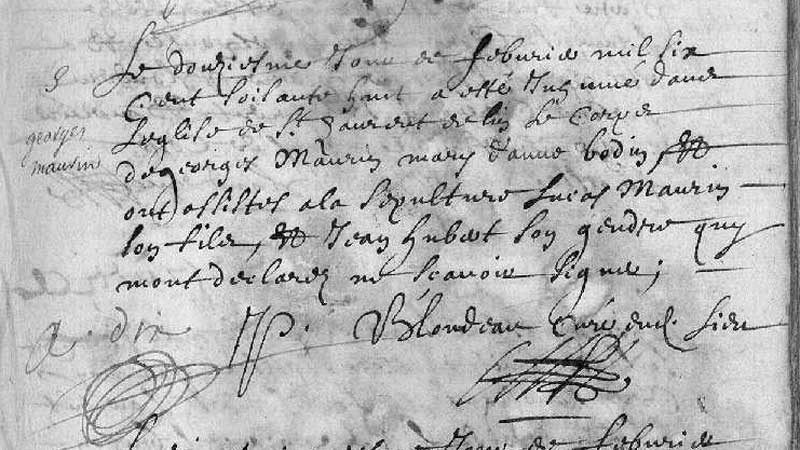 3
georges
maurin
Le douziesme Jour de feburier mil six
Cent soisante huit a esté Inhumé dans
Leglise de St Laurent de lin Le Corps
de georges Maurin marys d'anne bodin, et
ont assistes a la sepulture Lucas Maurin
son fils, et Jean hubert son gendre quy
mont declarez ne scavoir signer;
Blondeau Curé
Jour de feburier